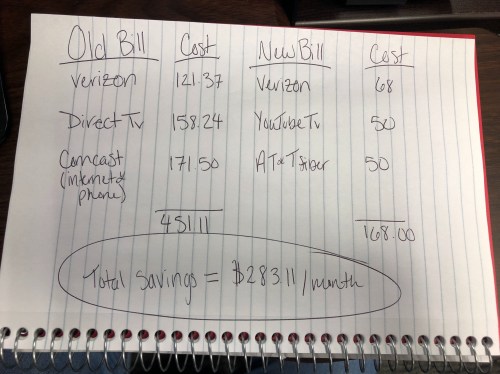 Old Bill Cost New Bill Cost
Verizon 121.37 Verizon 68
Direct Tv 158.24 YouTube Tv 50
Comcast 171.50 AT&T fiber 50
(internet &
phone)
451.11 168.00
Total Savings = $283.11/month